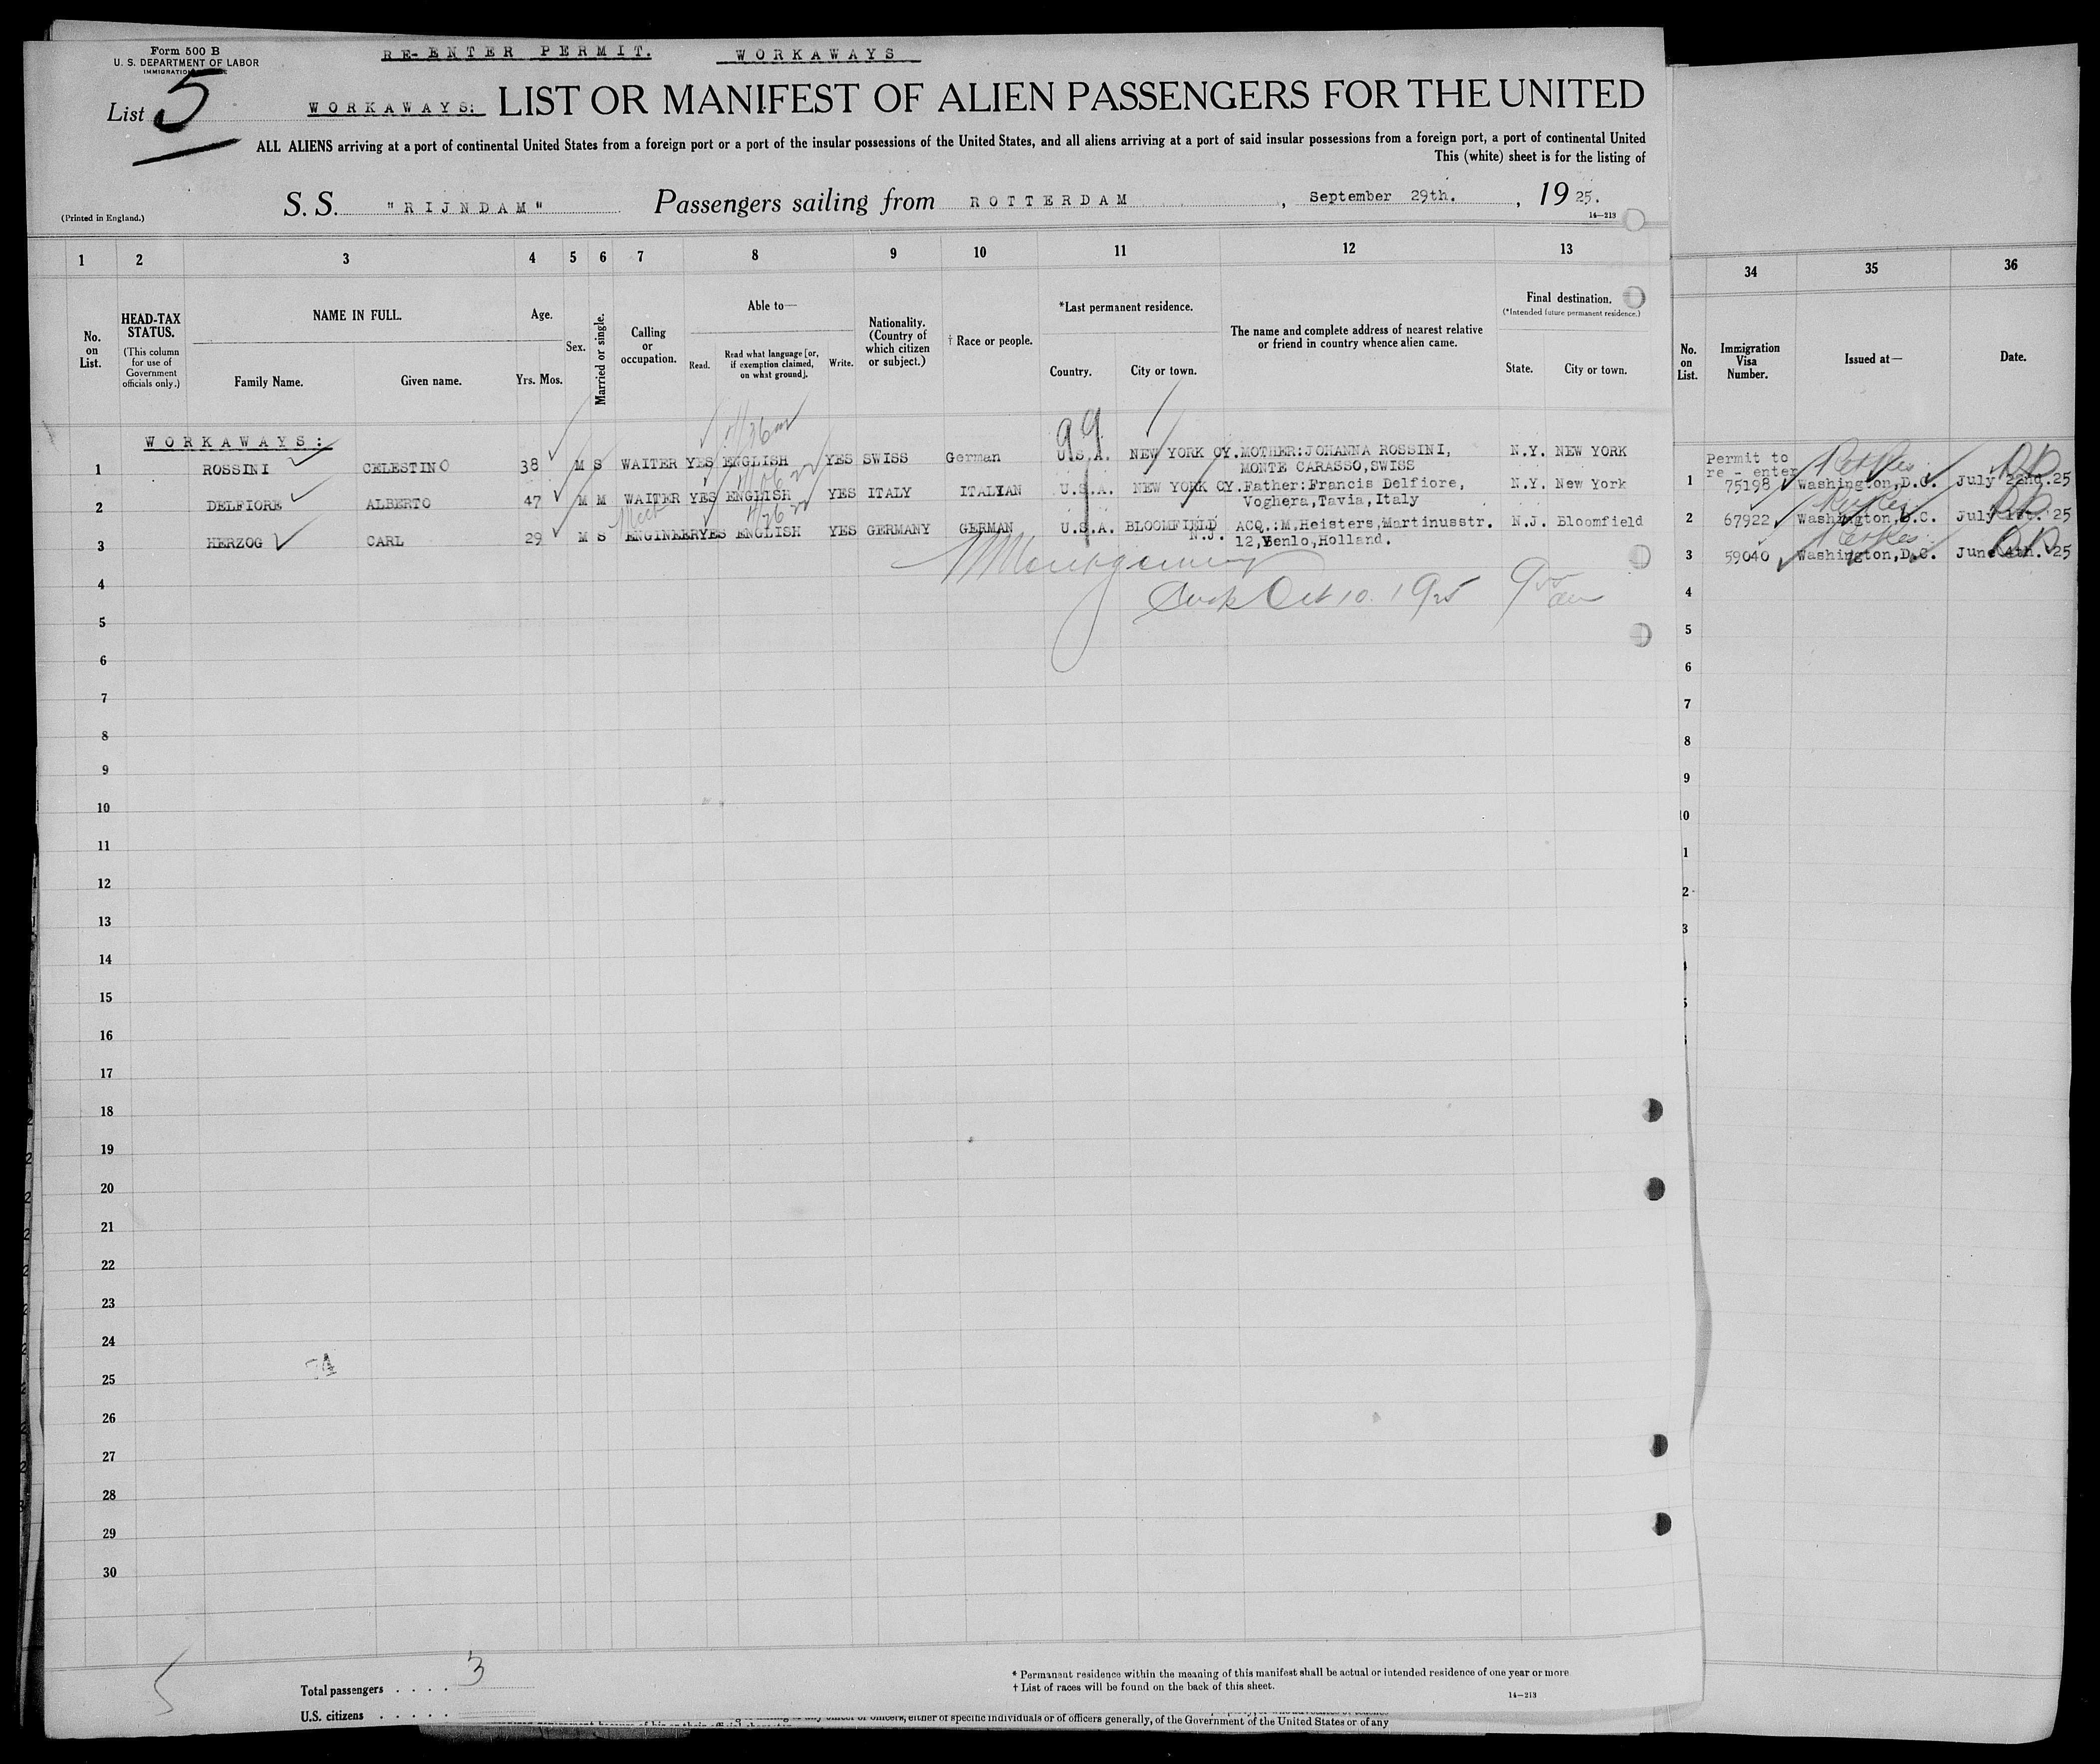 Form 500 B
U. S. DEPARTMENT OF LABOR
RE-ENTER PERMIT. WORKAWAYS
List 5
WORKAWAYS: LIST OR MANIFEST OF ALIEN PASSENGERS FOR THE UNITED
ALL ALIENS arriving at a port of continental United States from a foreign port or a port of the insular possessions of the United States, and all aliens arriving at a port of said insular possessions from a foreign port, a port of continental United
This (white) sheet is for the listing of
(Printed in England.)
S. S. "RIJNDAM" Passengers sailing from ROTTERDAM, September 29th., 1925.
14—213
1 2 3 4 5 6 7 8 9 10 11 12 13
No. on List.
HEAD-TAX STATUS.
(This column for use of Government officials only.)
NAME IN FULL.
Family Name. Given name.
Age.
Yrs. Mos.
Sex.
Married or single.
Calling or occupation.
Able to—
Read. Read what language [or, if exemption claimed, on what ground]. Write.
Nationality. (Country of which citizen or subject.)
† Race or people.
*Last permanent residence.
Country. City or town.
The name and complete address of nearest relative or friend in country whence alien came.
Final destination.
(*Intended future permanent residence.)
State. City or town.
34 35 36
No. on List.
Immigration Visa Number.
Issued at—
Date.
WORKAWAYS:
99
1 ROSSINI CELESTINO 38 M S WAITER YES ENGLISH YES SWISS German U.S.A. NEW YORK CY. MOTHER:JOHANNA ROSSINI, N.Y. NEW YORK
MONTE CARASSO,SWISS
2 DELFIORE ALBERTO 47 M M WAITER YES ENGLISH YES ITALY ITALIAN U.S.A. NEW YORK CY. Father:Francis Delfiore, N.Y. New York
Voghera,Tavia,Italy
3 HERZOG CARL 29 M S ENGINEER YES ENGLISH YES GERMANY GERMAN U.S.A. BLOOMFIELD N.J. ACQ.:M.Heisters,Martinusstr. N.J. Bloomfield
12,Venlo,Holland.
Montgomery
Oct 10. 1925
4
5
6
7
8
9
10
11
12
13
14
15
16
17
18
19
20
21
22
23
24
25
26
27
28
29
30
Permit to
re - enter
1 75198 Washington,D.C. July 22nd.25
2 67922 Washington,D.C. July 1st. 25
3 59040 Washington,D.C. June 4th. 25
4
5
6
7
8
9
10
1
2
3
Total passengers . . . . 3
U.S. citizens . . . . .
* Permanent residence within the meaning of this manifest shall be actual or intended residence of one year or more
† List of races will be found on the back of this sheet.
14—213
officers, either of specific individuals or of officers generally, of the Government of the United States or of any